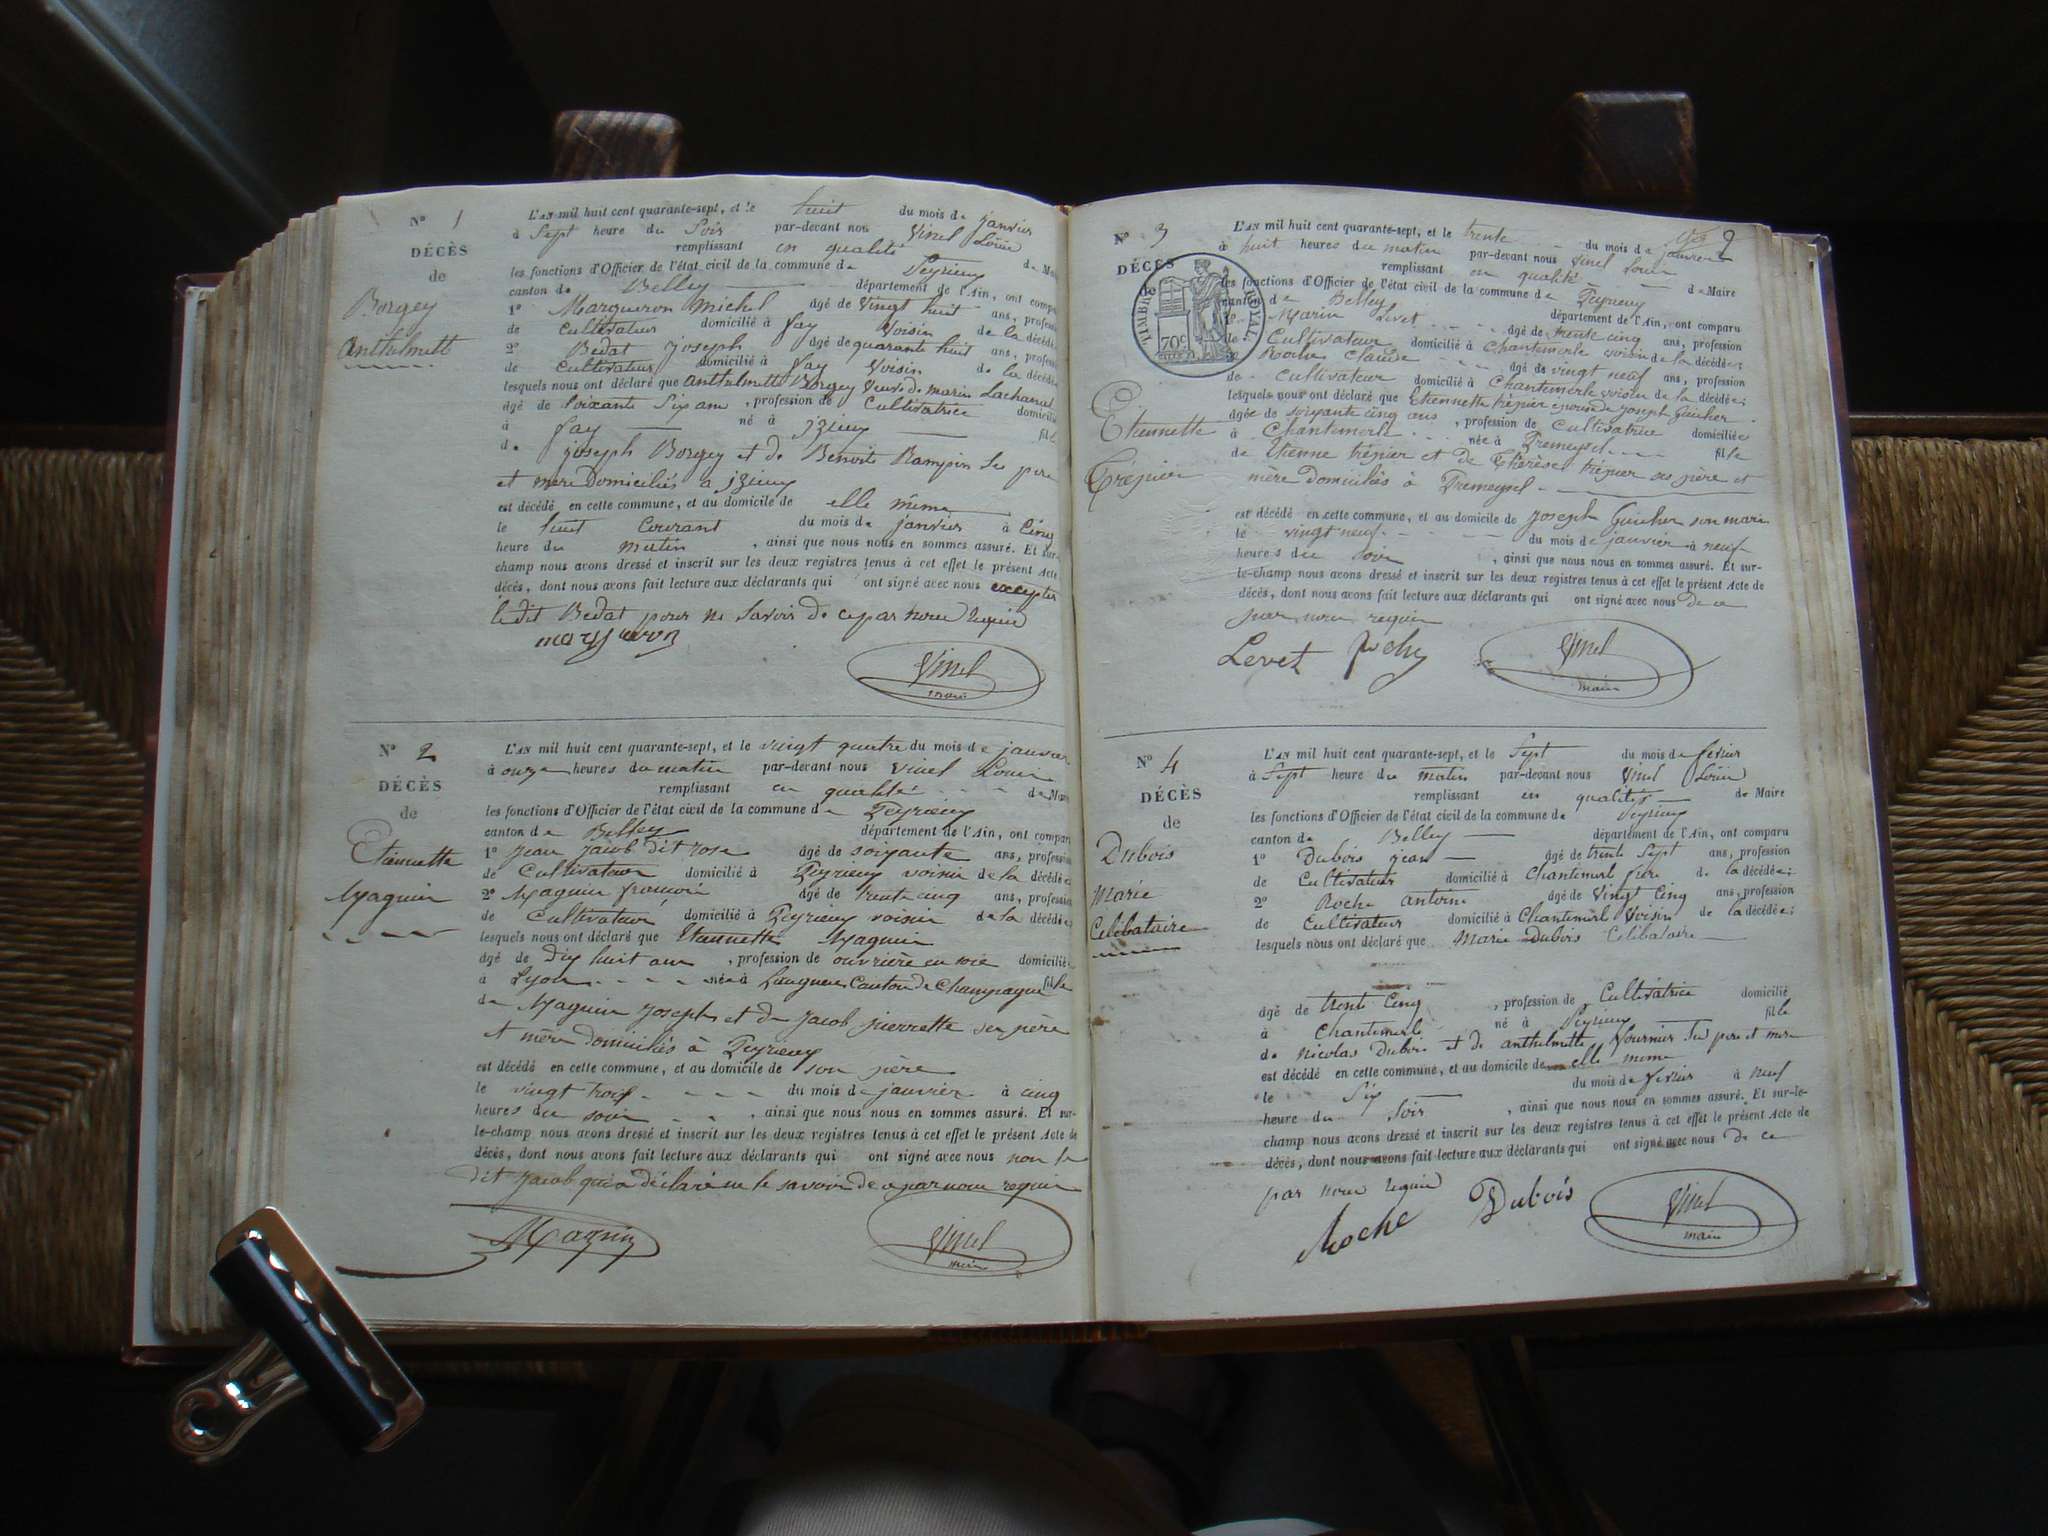 N° 1
DÉCÈS
de
Borgey
Anthelmette
L'AN mil huit cent quarante-sept, et le huit du mois de janvier
à Sept heure du Soir par-devant nous Vinel Louis
remplissant en qualité de Maire
les fonctions d'Officier de l'état civil de la commune de Peyrieu
canton de Belley département de l'Ain, ont comparu
1° Margueron Michel âgé de vingt huit ans, profession
de Cultivateur domicilié à fay Voisin de la décédée
2° Bedat joseph âgé de quarante huit ans, profession
de Cultivateur domicilié à fay Voisin de la décédée
lesquels nous ont déclaré que Anthelmette Borgey Veuve de marin Lachanal
âgé de Soixante Six ans, profession de Cultivatrice domicilié
à fay né à izieu fille
de joseph Borgey et de Benoite Rampin Ses pere
et mere Domiciliés a izieu
est décédé en cette commune, et au domicile de elle même
le huit Courant du mois de janvier à Cinq
heure du matin, ainsi que nous nous en sommes assuré. Et sur-
champ nous avons dressé et inscrit sur les deux registres tenus à cet effet le présent Acte
décès, dont nous avons fait lecture aux déclarants qui ont signé avec nous excepter
le dit Bedat pour ne Savoir de ce par nous requis
margueron
Vinel
maire
N° 2
DÉCÈS
de
Etiennette
Magnin
L'AN mil huit cent quarante-sept, et le vingt quatre du mois de janvier
à onze heures du matin par-devant nous Vinel Louis
remplissant en qualité de Maire
les fonctions d'Officier de l'état civil de la commune de Peyrieu
canton de Belley département de l'Ain, ont comparu
1° Jean Jacob dit rose âgé de soixante ans, profession
de Cultivateur domicilié à Peyrieu voisin de la décédée
2° Magnin françois âgé de trente cinq ans, profession
de Cultivateur domicilié à Peyrieu voisin de la décédée
lesquels nous ont déclaré que Etiennette Magnin
âgé de dix huit ans, profession de ouvrière en soie domicilié
à Lyon née à Canton de Champagne fille
de Magnin Joseph et de Jacob pierrette ses père
et mère domiciliés à Peyrieu
est décédé en cette commune, et au domicile de son père
le vingt trois du mois de janvier à cinq
heures du soir, ainsi que nous nous en sommes assuré. Et sur-
le-champ nous avons dressé et inscrit sur les deux registres tenus à cet effet le présent Acte de
décès, dont nous avons fait lecture aux déclarants qui ont signé avec nous non le
dit Jacob qui a déclaré ne le savoir de ce par nous requis
Magnin
Vinel
maire
2
N° 3
DÉCÈS
de
TIMBRE ROYAL
70c
Etiennette
Trépier
L'AN mil huit cent quarante-sept, et le trente du mois de janvier
à huit heures du matin par-devant nous Vinel Louis
remplissant en qualité de Maire
les fonctions d'Officier de l'état civil de la commune de Peyrieu
canton de Belley département de l'Ain, ont comparu
1° Marin Levet âgé de trente cinq ans, profession
de Cultivateur domicilié à Chantemerle voisin de la décédée;
2° Roche Claude âgé de vingt neuf ans, profession
de Cultivateur domicilié à Chantemerle voisin de la décédée;
lesquels nous ont déclaré que Etiennette trépier epouse de joseph Guicher
âgée de soixante cinq ans, profession de Cultivatrice domiciliée
à Chantemerle née à Premeyzel fille
de Etienne trépier et de Thérèse trépier ses père et
mère domiciliés à Premeyzel
est décédé en cette commune, et au domicile de joseph Guicher son mari
le vingt neuf du mois de janvier à neuf
heures du soir, ainsi que nous nous en sommes assuré. Et sur-
le-champ nous avons dressé et inscrit sur les deux registres tenus à cet effet le présent Acte de
décès, dont nous avons fait lecture aux déclarants qui ont signé avec nous de ce
par nous requis
Levet Roche
Vinel
maire
N° 4
DÉCÈS
de
Dubois
Marie
Celibataire
L'AN mil huit cent quarante-sept, et le Sept du mois de fevrier
à Sept heure du matin par-devant nous Vinel Louis
remplissant en qualité de Maire
les fonctions d'Officier de l'état civil de la commune de Peyrieu
canton de Belley département de l'Ain, ont comparu
1° Dubois jean âgé de trente Sept ans, profession
de Cultivateur domicilié à Chantemerl frere de la décédée;
2° Roche antoine âgé de Vingt Cinq ans, profession
de Cultivateur domicilié à Chantemerl Voisin de la décédée;
lesquels nous ont déclaré que Marie Dubois Celibataire
âgé de trente Cinq, profession de Cultivatrice domicilié
à Chantemerle né à Peyrieu fille
de Nicolas Dubois et de anthelmette Fournier Ses pere et mere
est décédé en cette commune, et au domicile de elle meme
le Six du mois de fevrier à neuf
heure du Soir, ainsi que nous nous en sommes assuré. Et sur-le-
champ nous avons dressé et inscrit sur les deux registres tenus à cet effet le présent Acte de
décès, dont nous avons fait lecture aux déclarants qui ont signé avec nous de ce
par nous requis
Roche Dubois
Vinel
maire